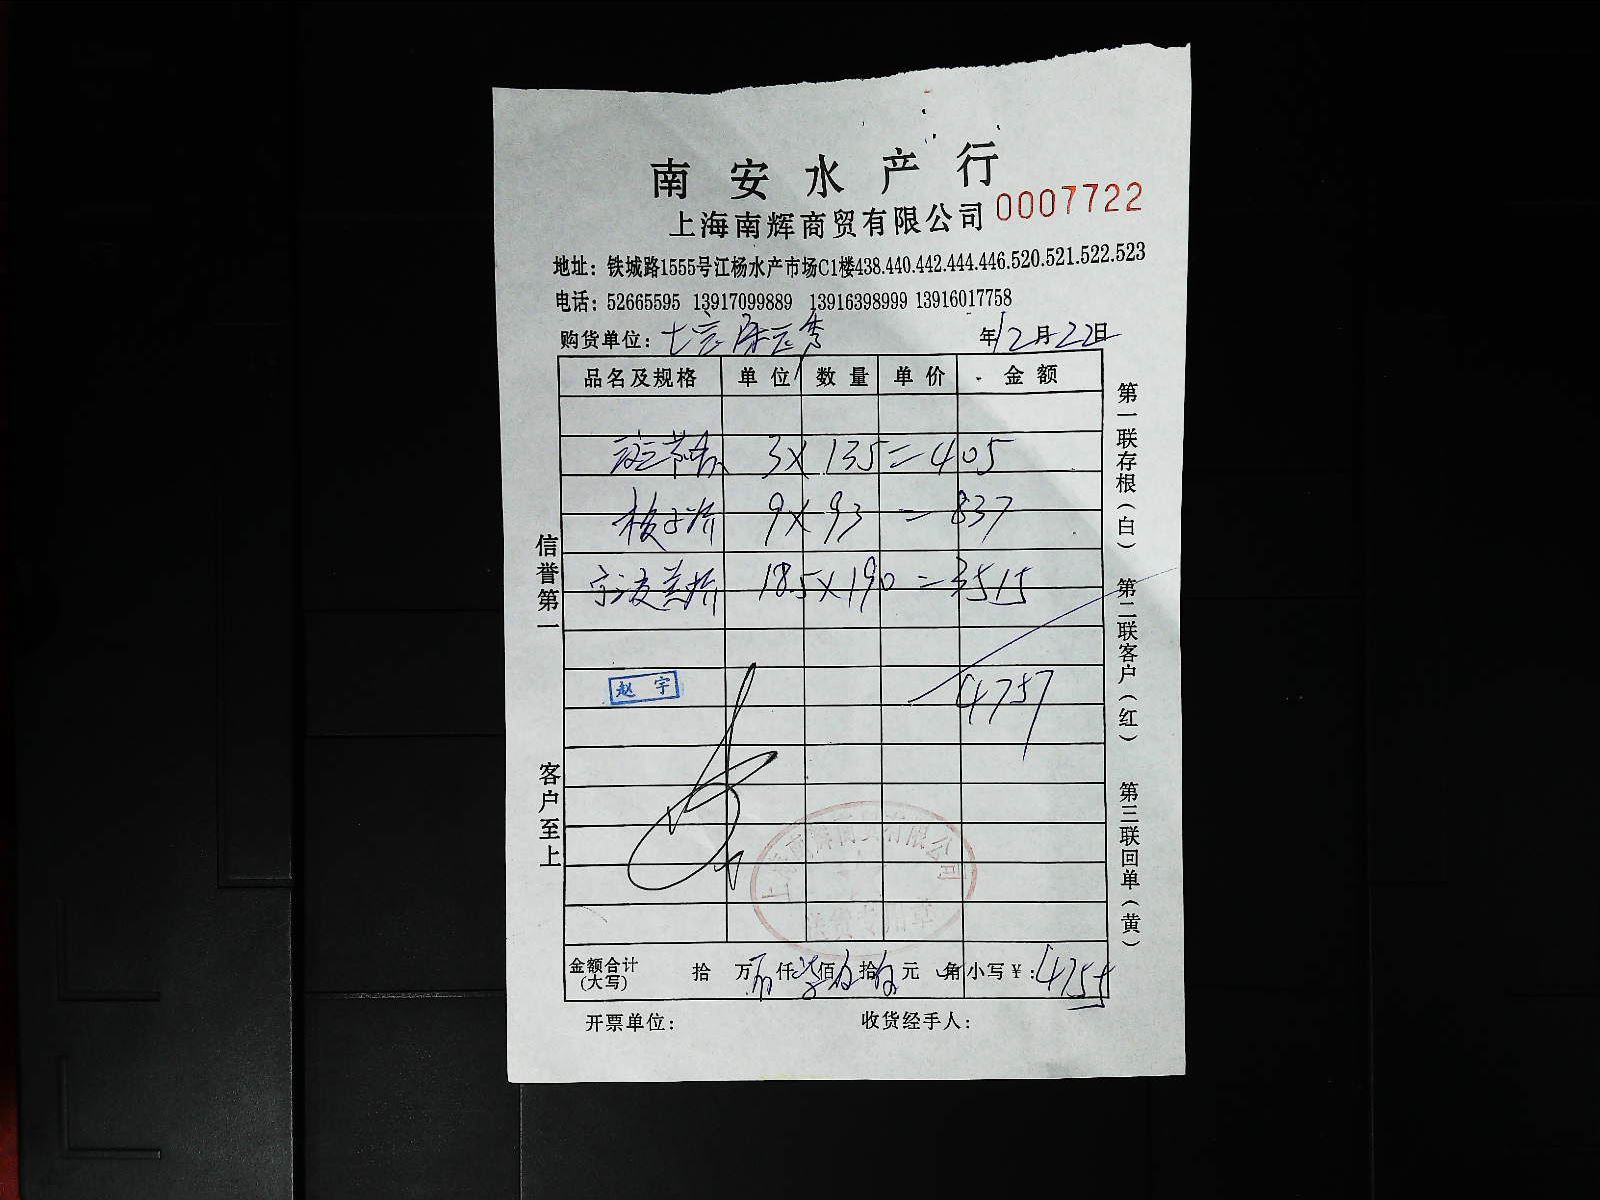 南安水产行
上海南辉商贸有限公司 0007722
地址：铁城路1555号江杨水产市场C1楼438.440.442.444.446.520.521.522.523
电话：52665595 13917099889 13916398999 13916017758
购货单位： 年12月22日
品名及规格 单位 数量 单价 金额
斑节虾 3×135=405
梭子蟹 9×93=837
宁波 18.5×190=3515
赵宇
4757
金额合计(大写) 拾 万 仟 佰 拾 元 角 小写￥:4755
开票单位： 收货经手人：
信誉第一
客户至上
第一联存根（白） 第二联客户（红） 第三联回单（黄）